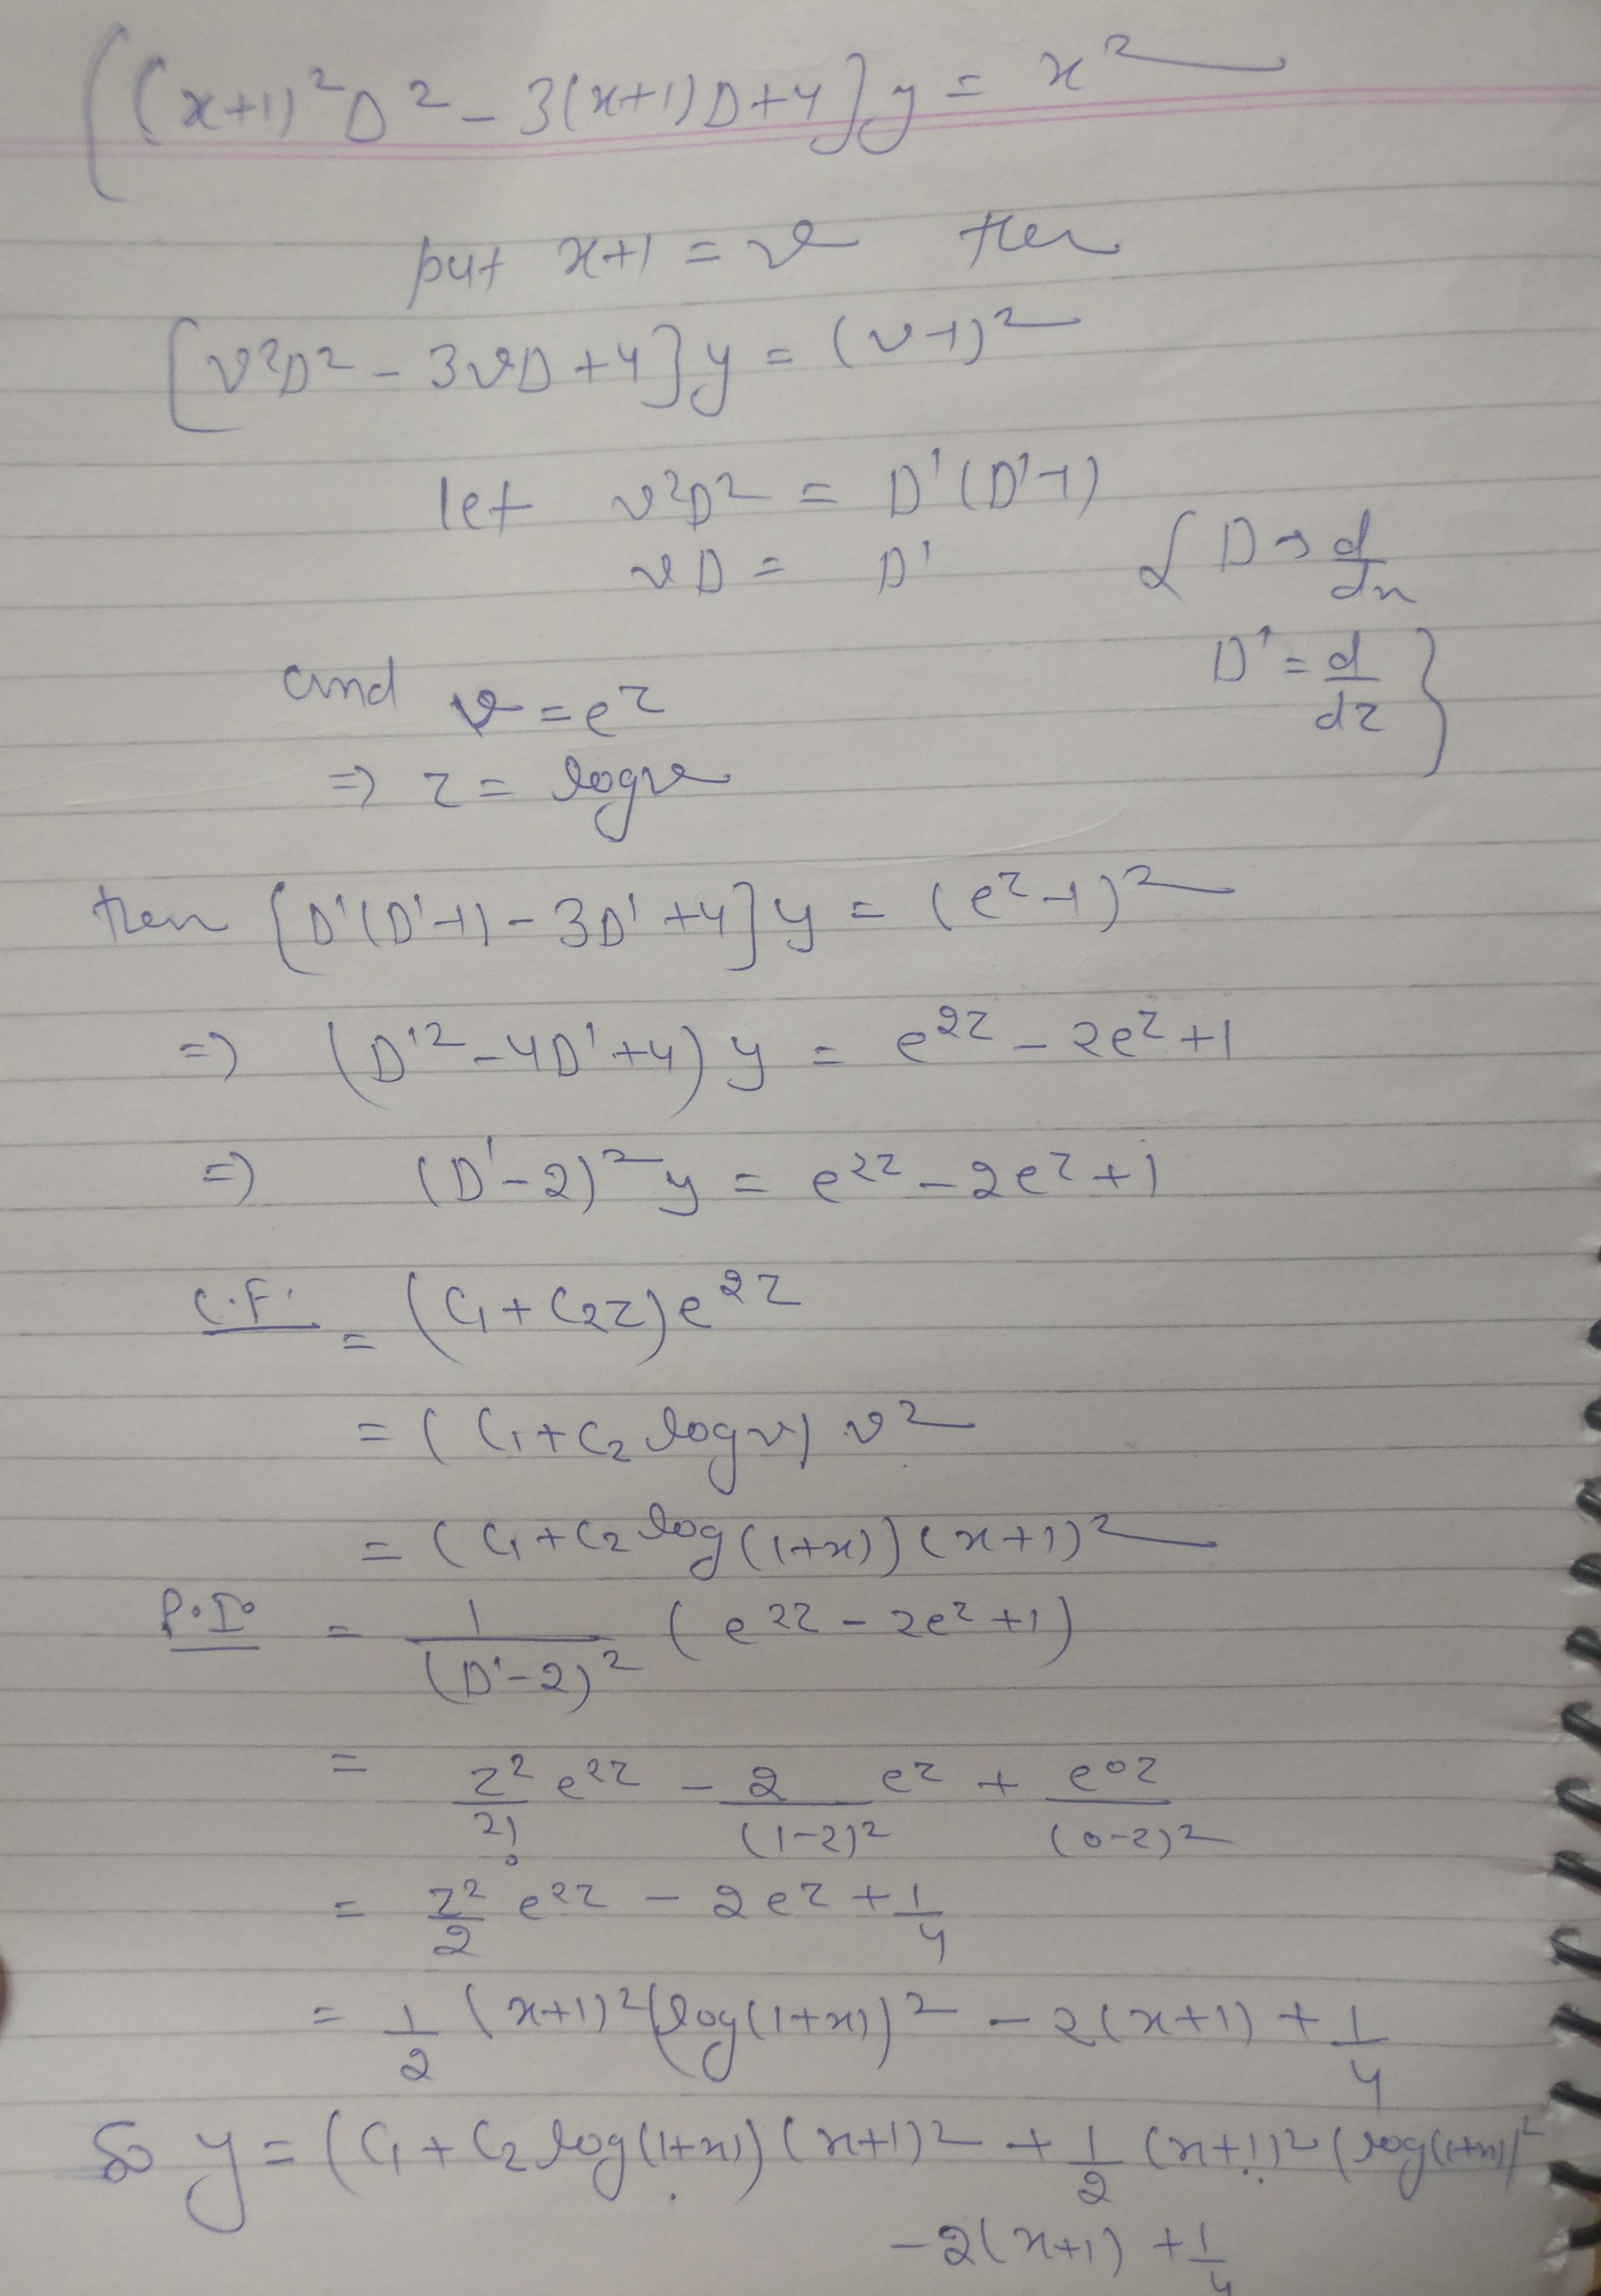 [(x+1)²D² - 3(x+1)D+4]y = x²
put x+1 = v then
[v²D² - 3vD+4]y = (v-1)²
let v²D² = D'(D'-1)
vD = D' { D → d/dx
D' = d/dz }
and v = e^z
⇒ z = log v
then [D'(D'-1) - 3D'+4]y = (e^z-1)²
⇒ (D'² - 4D'+4)y = e^2z - 2e^z+1
⇒ (D'-2)²y = e^2z - 2e^z+1
C.F. = (C₁+C₂z)e^2z
= (C₁+C₂ log v) v²
= (C₁+C₂ log(1+x))(x+1)²
P.I. = 1/(D'-2)² (e^2z - 2e^z+1)
= z²/2! e^2z - 2/(1-2)² e^z + e^0z/(0-2)²
= z²/2 e^2z - 2e^z + 1/4
= 1/2 (x+1)²(log(1+x))² - 2(x+1) + 1/4
So y = (C₁+C₂ log(1+x))(x+1)² + 1/2 (x+1)²(log(1+x))²
- 2(x+1) + 1/4